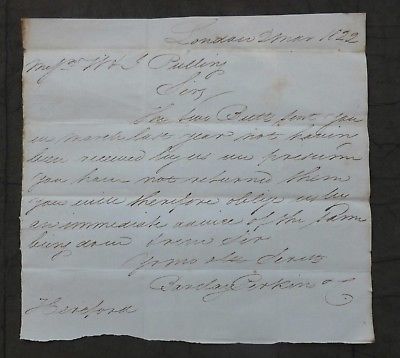 London 2 Mar 1822
Messrs W & J Pulling
Sirs
The two Butts sent you
in March last year not having
been received by us we presume
you have not returned them
you will therefore oblige us by
an immediate advice of the same
being done I remn Sir
Yrms obt Servts
Barclay Perkins & Co
Hereford